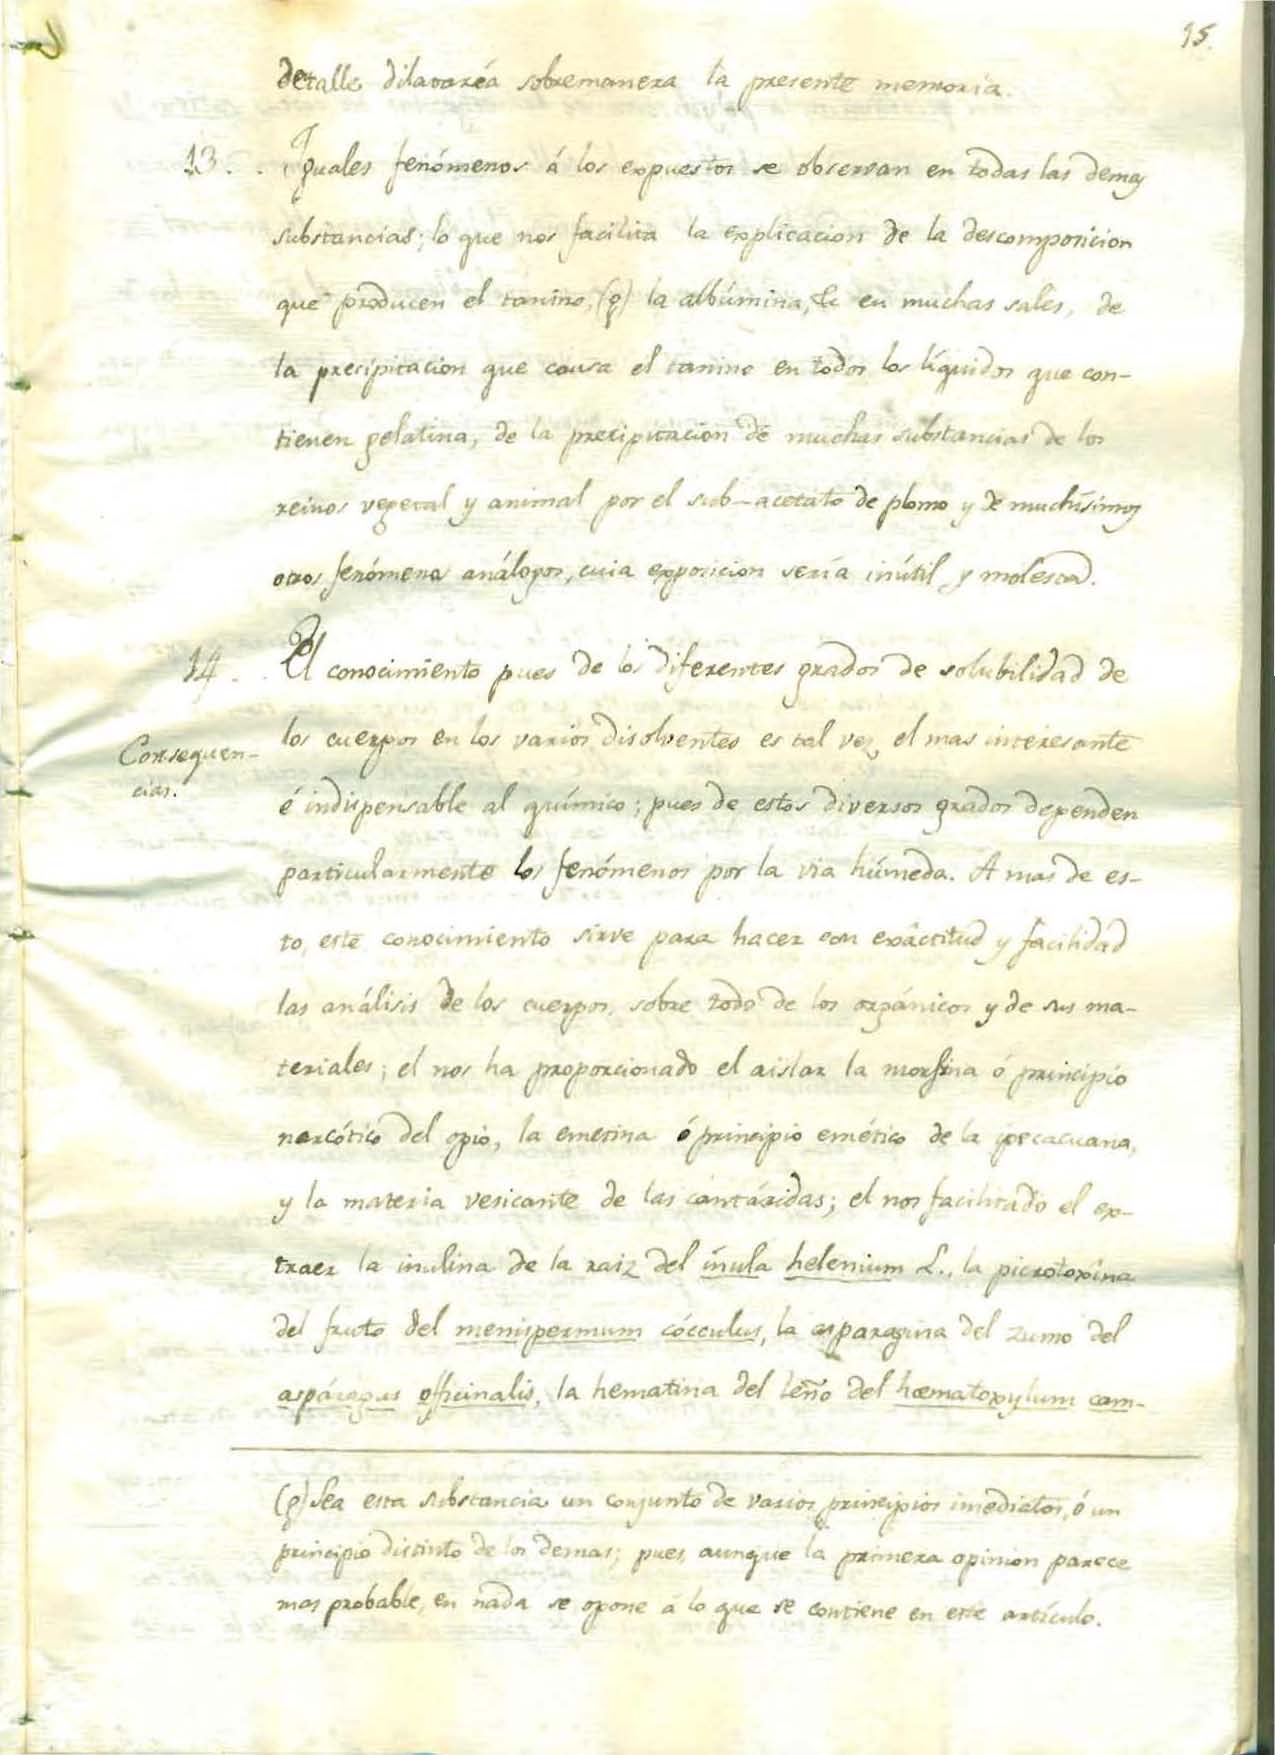 15.
detalle dilataría sobremanera la presente memoria.
13. . Iguales fenómenos á los expuestos se observan en todas las demas
substancias; lo que nos facilita la explicacion de la descomposicion
que producen el tanino, (g) la albúmina, &c en muchas sales, de
la precipitacion que causa el tanino en todos los líquidos que con-
tienen gelatina, de la precipitacion de muchas substancias de los
reinos vegetal y animal por el sub-acetato de plomo y de muchísimos
otros fenómenos análogos, cuia exposicion sería inútil y molesta.
14. . El conocimiento pues de los diferentes grados de solubilidad de
Consequen-
cias.
los cuerpos en los varios disolventes es tal vez el mas interesante
é indispensable al químico; pues de estos diversos grados dependen
particularmente los fenómenos por la via húmeda. A mas de es-
to, este conocimiento sirve para hacer con exâctitud y facilidad
las análisis de los cuerpos, sobre todo de los orgánicos y de sus ma-
teriales; el nos ha proporcionado el aislar la morfina ó principio
narcótico del opio, la emetina ó principio emético de la ipecacuana,
y la materia vesicante de las cantáridas; el nos facilitado el ex-
traer la inulina de la raiz del ínula helenium L., la picrotoxîna
del fruto del menispermum cócculus, la esparagina del zumo del
aspáragus officinalis, la hematina del leño del hæmatoxylum cam-
(g) Sea esta substancia un conjunto de varios principios imediatos, ó un
principio distinto de los demas; pues, aunque la primera opinion parece
mas probable, en nada se opone á lo que se contiene en este artículo.